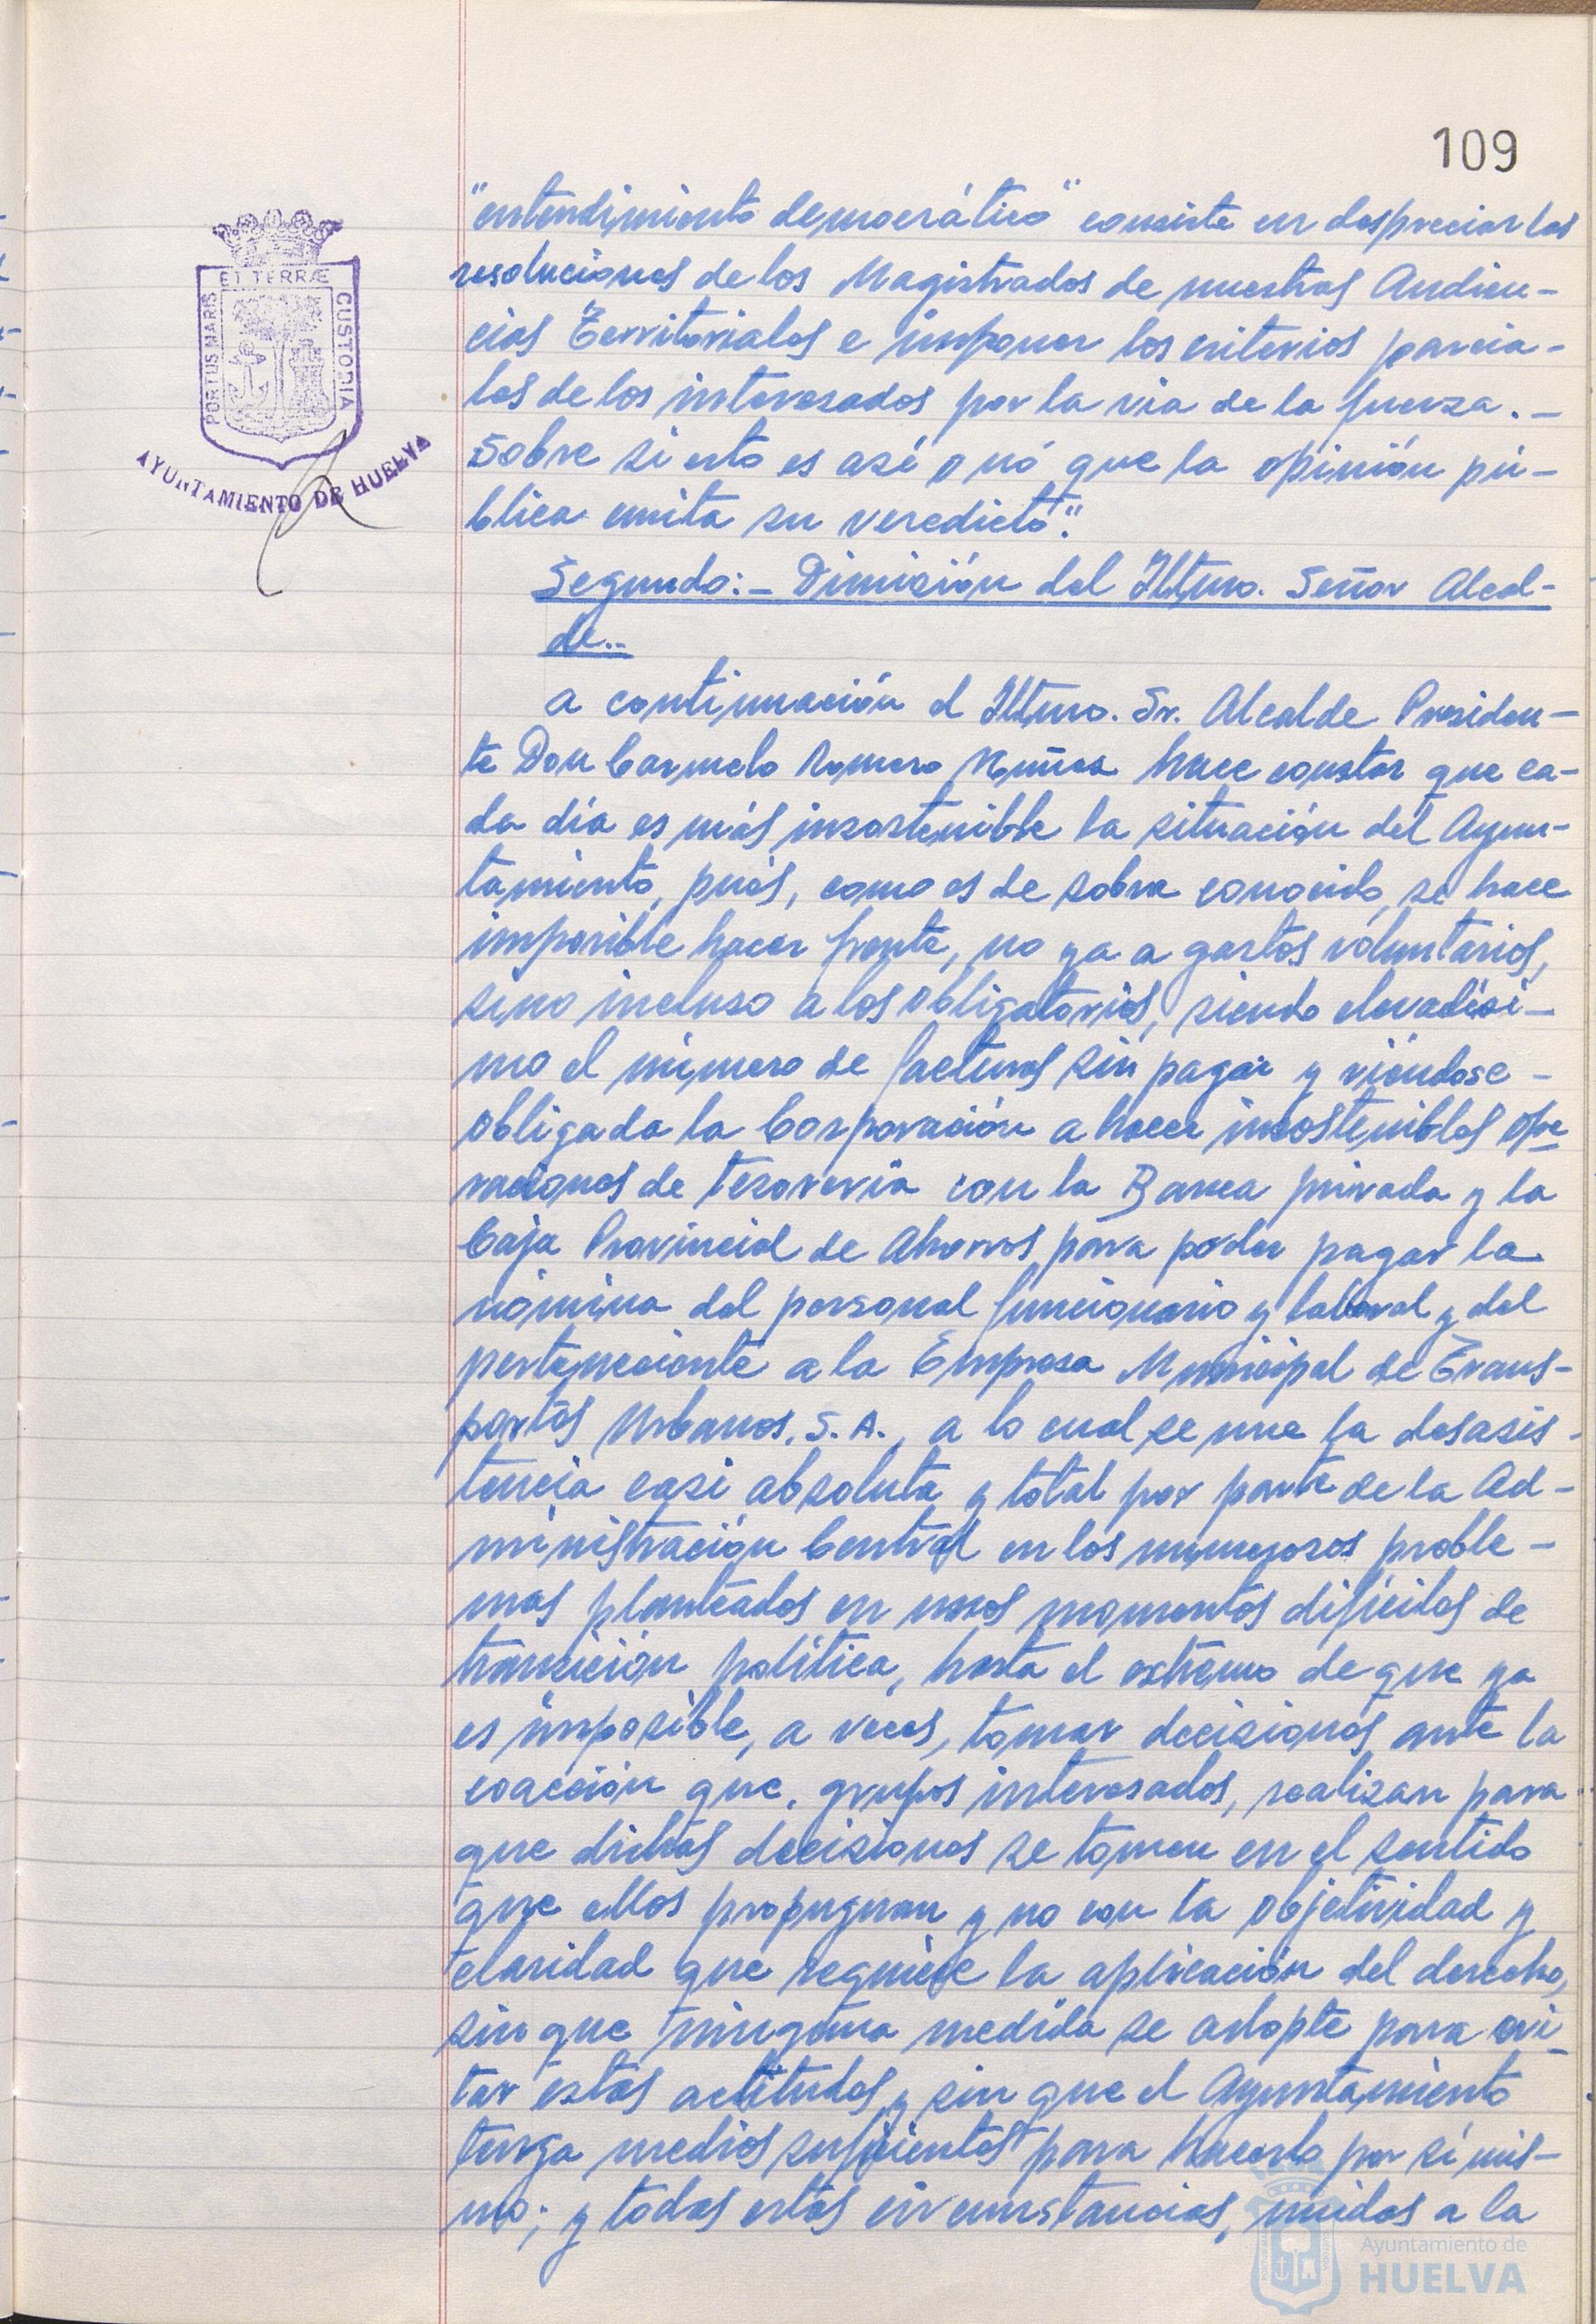 109
ET TERRÆ
PORTUS MARIS
CUSTODIA
AYUNTAMIENTO DE HUELVA
"entendimiento democrático" consiste en despreciar las
resoluciones de los Magistrados de nuestras Audien-
cias Territoriales e imponer los criterios parcia-
les de los interesados por la via de la fuerza.-
Sobre si esto es así o nó que la opinión pú-
blica emita su veredicto".
Segundo:- Dimisión del Iltmo. Señor Alcal-
de.-
A continuación el Iltmo. Sr. Alcalde Presiden-
te Don Carmelo Romero Núñez hace constar que ca-
da día es más insostenible la situación del Ayun-
tamiento, pués, como es de sobra conocido, se hace
imposible hacer frente, no ya a gastos voluntarios,
sino incluso a los obligatorios, siendo elevadísi-
mo el número de facturas sin pagar y viéndose-
obligada la Corporación a hacer insostenibles ope
raciones de tesorería con la Banca privada y la
Caja Provincial de Ahorros para poder pagar la
nómina del personal funcionario y laboral y del
perteneciente a la Empresa Municipal de Trans-
portes Urbanos, S.A., a lo cual se une la desasis-
tencia casi absoluta y total por parte de la Ad-
ministración Central en los numerosos proble-
mas planteados en unos momentos difíciles de
transición política, hasta el extremo de que ya
es imposible, a veces, tomar decisiones ante la
coacción que, grupos interesados, realizan para
que dichas decisiones se tomen en el sentido
que ellos propugnan y no con la objetividad y
claridad que requiere la aplicación del derecho,
sin que ninguna medida se adopte para evi
tar estas actitudes y sin que el Ayuntamiento
tenga medios suficientes para hacerlo por sí mis-
mo; y todas estas circunstancias, unidas a la
Ayuntamiento de
HUELVA